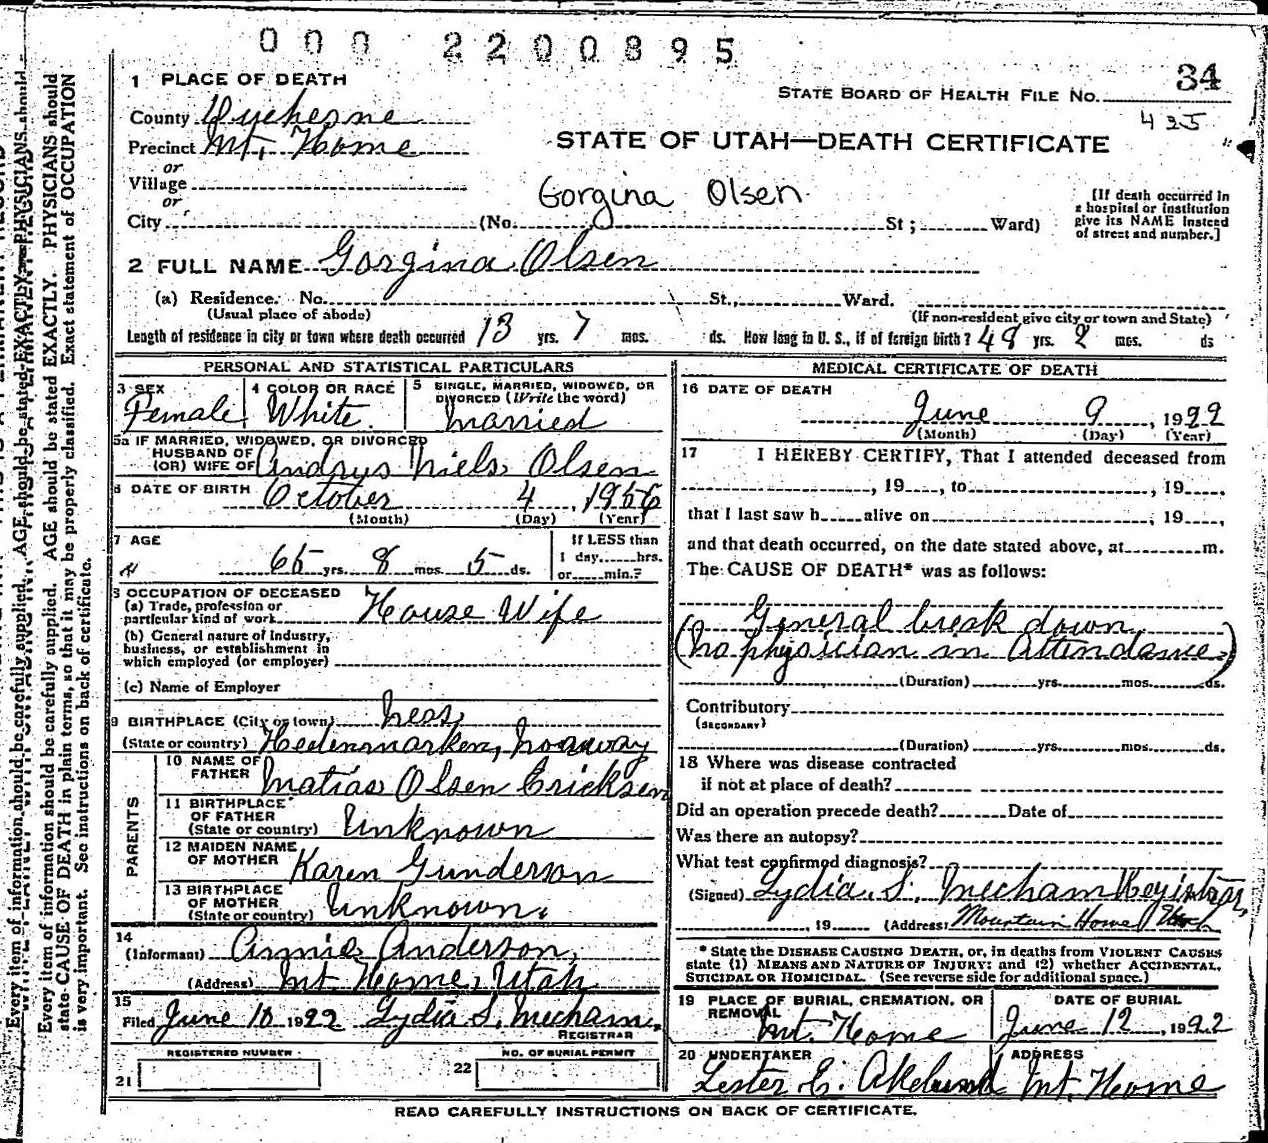 000 2200895
1 PLACE OF DEATH
STATE BOARD OF HEALTH FILE NO. 34
425
County Duchesne
Precinct Mt. Home
STATE OF UTAH—DEATH CERTIFICATE
or
Village
or
Gorgina Olsen
City (No. St; Ward)
[If death occurred in
a hospital or institution
give its NAME instead
of street and number.]
2 FULL NAME Gorgina Olsen
(a) Residence. No. St., Ward.
(Usual place of abode)
(If non-resident give city or town and State)
Length of residence in city or town where death occurred 13 yrs. 7 mos. ds. How long in U. S., if of foreign birth? 48 yrs. 2 mos. ds
PERSONAL AND STATISTICAL PARTICULARS
3 SEX Female
4 COLOR OR RACE White
5 SINGLE, MARRIED, WIDOWED, OR
DIVORCED (Write the word)
Married
5a IF MARRIED, WIDOWED, OR DIVORCED
HUSBAND OF
(OR) WIFE OF Andrys Niels Olsen
6 DATE OF BIRTH October 4, 1956
(Month) (Day) (Year)
7 AGE 65 yrs. 8 mos. 5 ds.
If LESS than
1 day hrs.
or min.?
8 OCCUPATION OF DECEASED
(a) Trade, profession or
particular kind of work House Wife
(b) General nature of Industry,
business, or establishment in
which employed (or employer)
(c) Name of Employer
9 BIRTHPLACE (City or town) Ness
(State or country) Hedenmarken, Norway
PARENTS
10 NAME OF
FATHER Matias Olsen Ericksen
11 BIRTHPLACE
OF FATHER
(State or country) Unknown
12 MAIDEN NAME
OF MOTHER Karen Gunderson
13 BIRTHPLACE
OF MOTHER
(State or country) Unknown.
14
(Informant) Annie Anderson,
(Address) Mt Home, Utah
15
Filed June 10 1922 Lydia S. Mecham,
REGISTRAR
REGISTERED NUMBER
21
NO. OF BURIAL PERMIT
22
MEDICAL CERTIFICATE OF DEATH
16 DATE OF DEATH
June 9, 1922
(Month) (Day) (Year)
17 I HEREBY CERTIFY, That I attended deceased from
, 19 , to , 19 ,
that I last saw h alive on , 19 ,
and that death occurred, on the date stated above, at m.
The CAUSE OF DEATH* was as follows:
General break down
(No physician in Attendance.)
(Duration) yrs. mos. ds.
Contributory
(SECONDARY)
(Duration) yrs. mos. ds.
18 Where was disease contracted
if not at place of death?
Did an operation precede death? Date of
Was there an autopsy?
What test confirmed diagnosis?
(Signed) Lydia S. Mecham Registrar,
, 19 (Address) Mountain Home Utah
* State the DISEASE CAUSING DEATH, or, in deaths from VIOLENT CAUSES
state (1) MEANS AND NATURE OF INJURY; and (2) whether ACCIDENTAL,
SUICIDAL OR HOMICIDAL. (See reverse side for additional space.)
19 PLACE OF BURIAL, CREMATION, OR
REMOVAL
Mt. Home
DATE OF BURIAL
June 12, 1922
20 UNDERTAKER
Lester E.
ADDRESS
Mt. Home
READ CAREFULLY INSTRUCTIONS ON BACK OF CERTIFICATE.
Every item of information should be carefully supplied. AGE should be stated EXACTLY. PHYSICIANS should
state CAUSE OF DEATH in plain terms, so that it may be properly classified. Exact statement of OCCUPATION
is very important. See instructions on back of certificate.